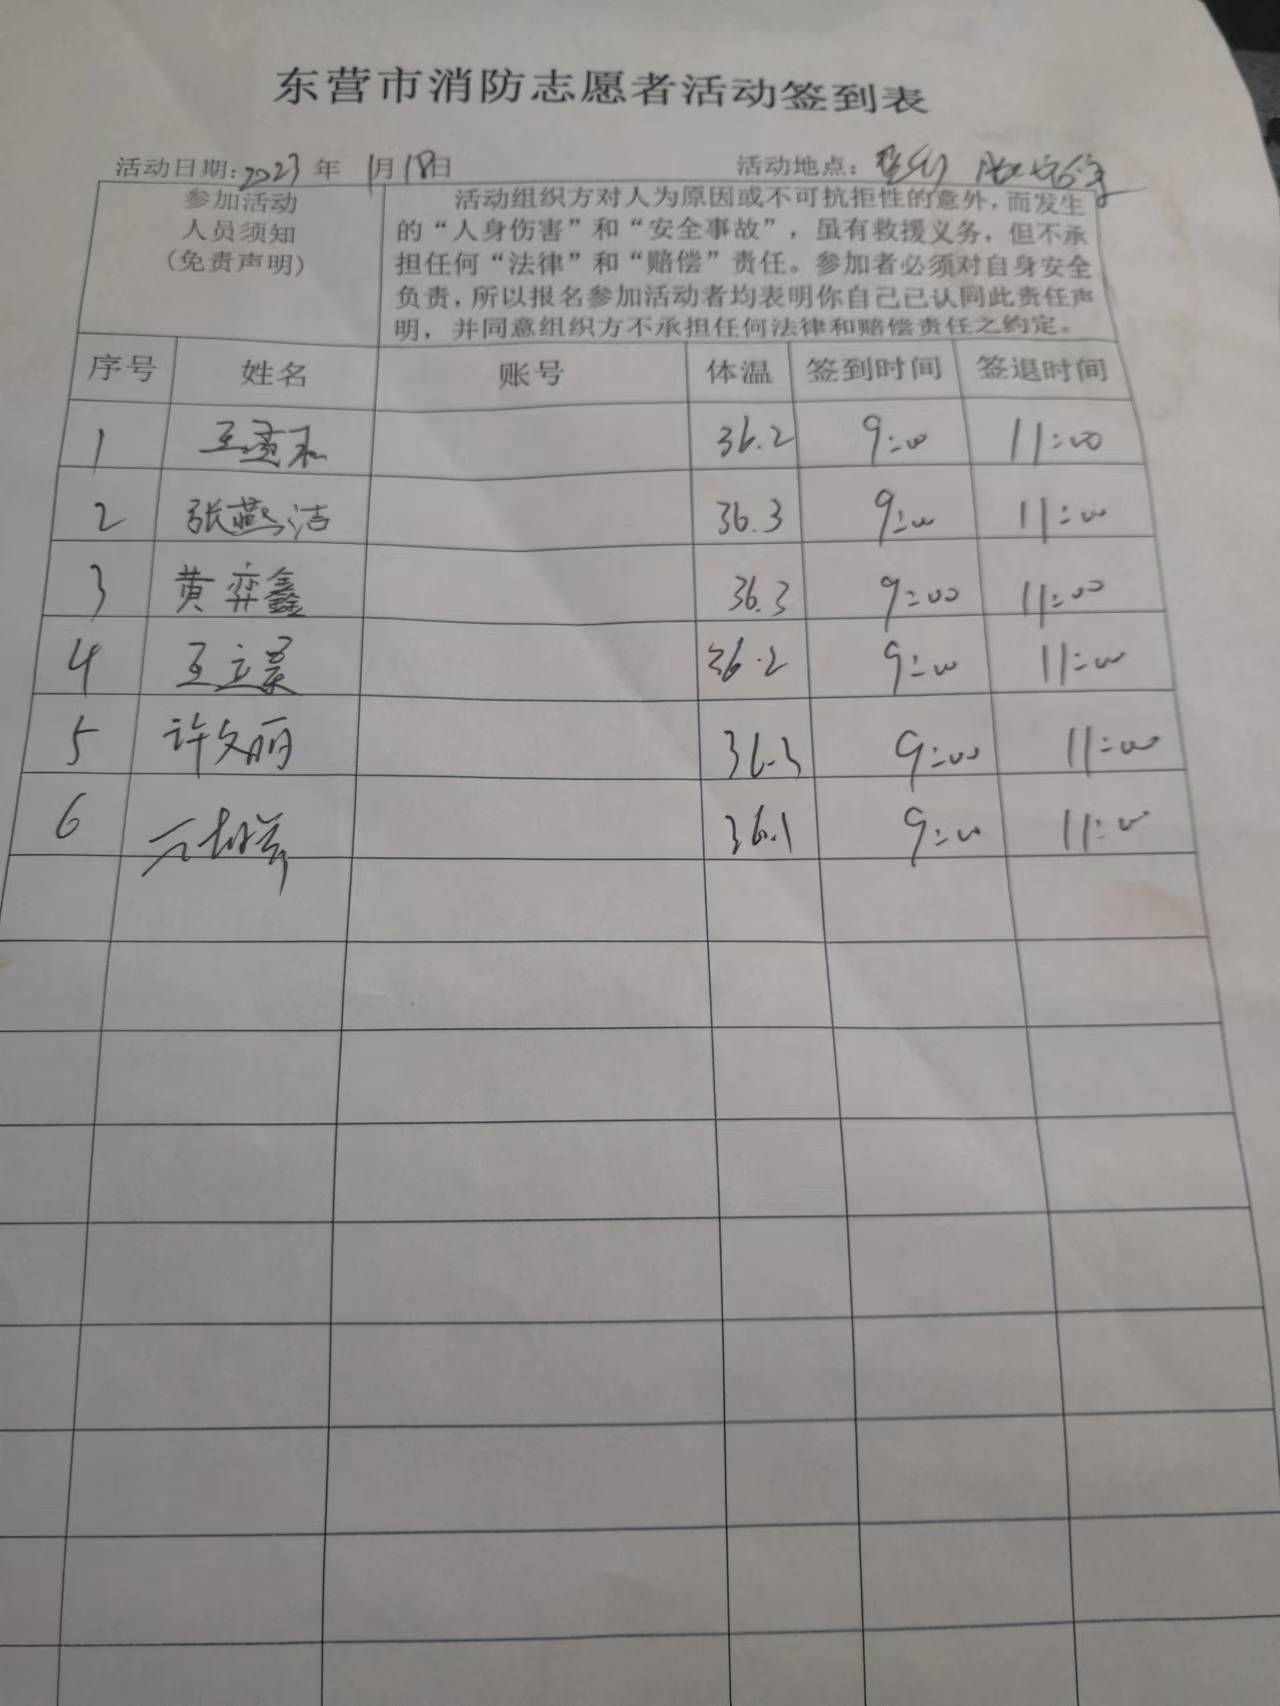 东营市消防志愿者活动签到表
活动日期:2023年 1月18日 活动地点:
参加活动
人员须知
(免责声明)
活动组织方对人为原因或不可抗拒性的意外,而发生
的“人身伤害”和“安全事故”,虽有救援义务,但不承
担任何“法律”和“赔偿”责任。参加者必须对自身安全
负责,所以报名参加活动者均表明你自己已认同此责任声
明,并同意组织方不承担任何法律和赔偿责任之约定。
序号 姓名 账号 体温 签到时间 签退时间
1 36.2 9:00 11:00
2 张燕洁 36.3 9:00 11:00
3 黄弈鑫 36.3 9:00 11:00
4 王立景 36.2 9:00 11:00
5 许文丽 36.3 9:00 11:00
6 36.1 9:00 11:00